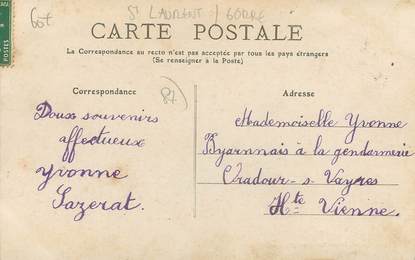 60t
St LAURENT s/ GORRE
CARTE POSTALE
La Correspondance au recto n'est pas acceptée par tous les pays étrangers
(Se renseigner à la Poste)
Correspondance
87
Adresse
Doux souvenirs
affectueux
Yvonne
Lazerat.
Mademoiselle Yvonne
Byarnnais à la gendarmerie
Oradour-s-Vayres
Hte Vienne.